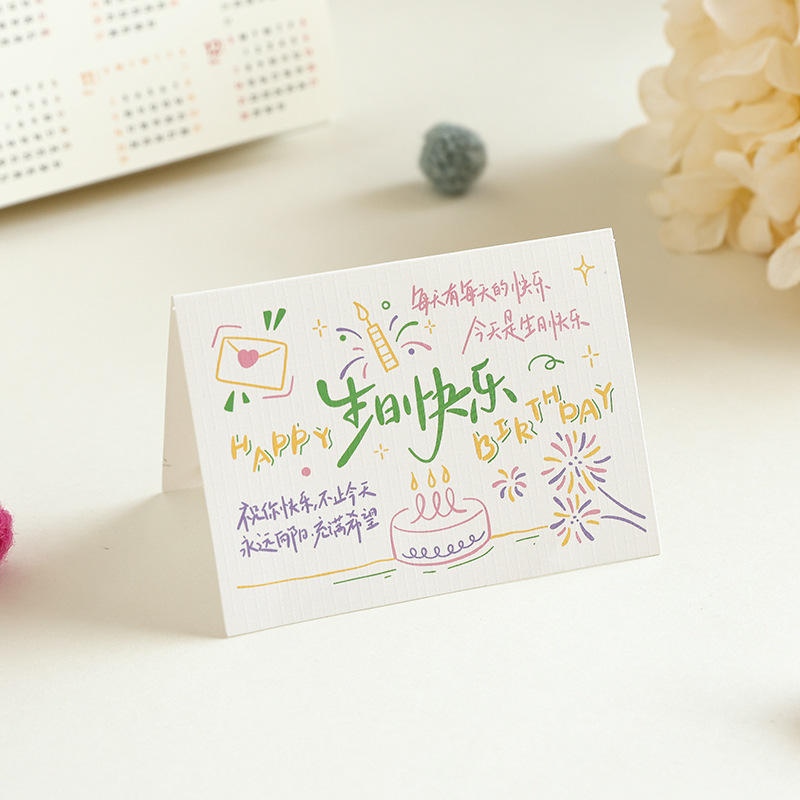 每天有每天的快乐
今天是生日快乐
生日快乐
HAPPY BIRTHDAY
祝你快乐,不止今天
永远向阳·充满希望